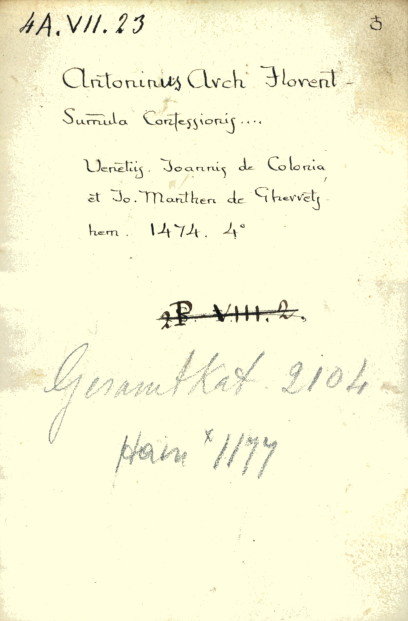 4A.VII.23
Antoninus Arch Florent-
Sum̄ula Confessionis....
Venetijs. Joannis de Colonia
et Jo. Manthen de Gherretz
hem. 1474. 4°
P. VIII.2.
Gesamtkat. 2104
Hain × 1177